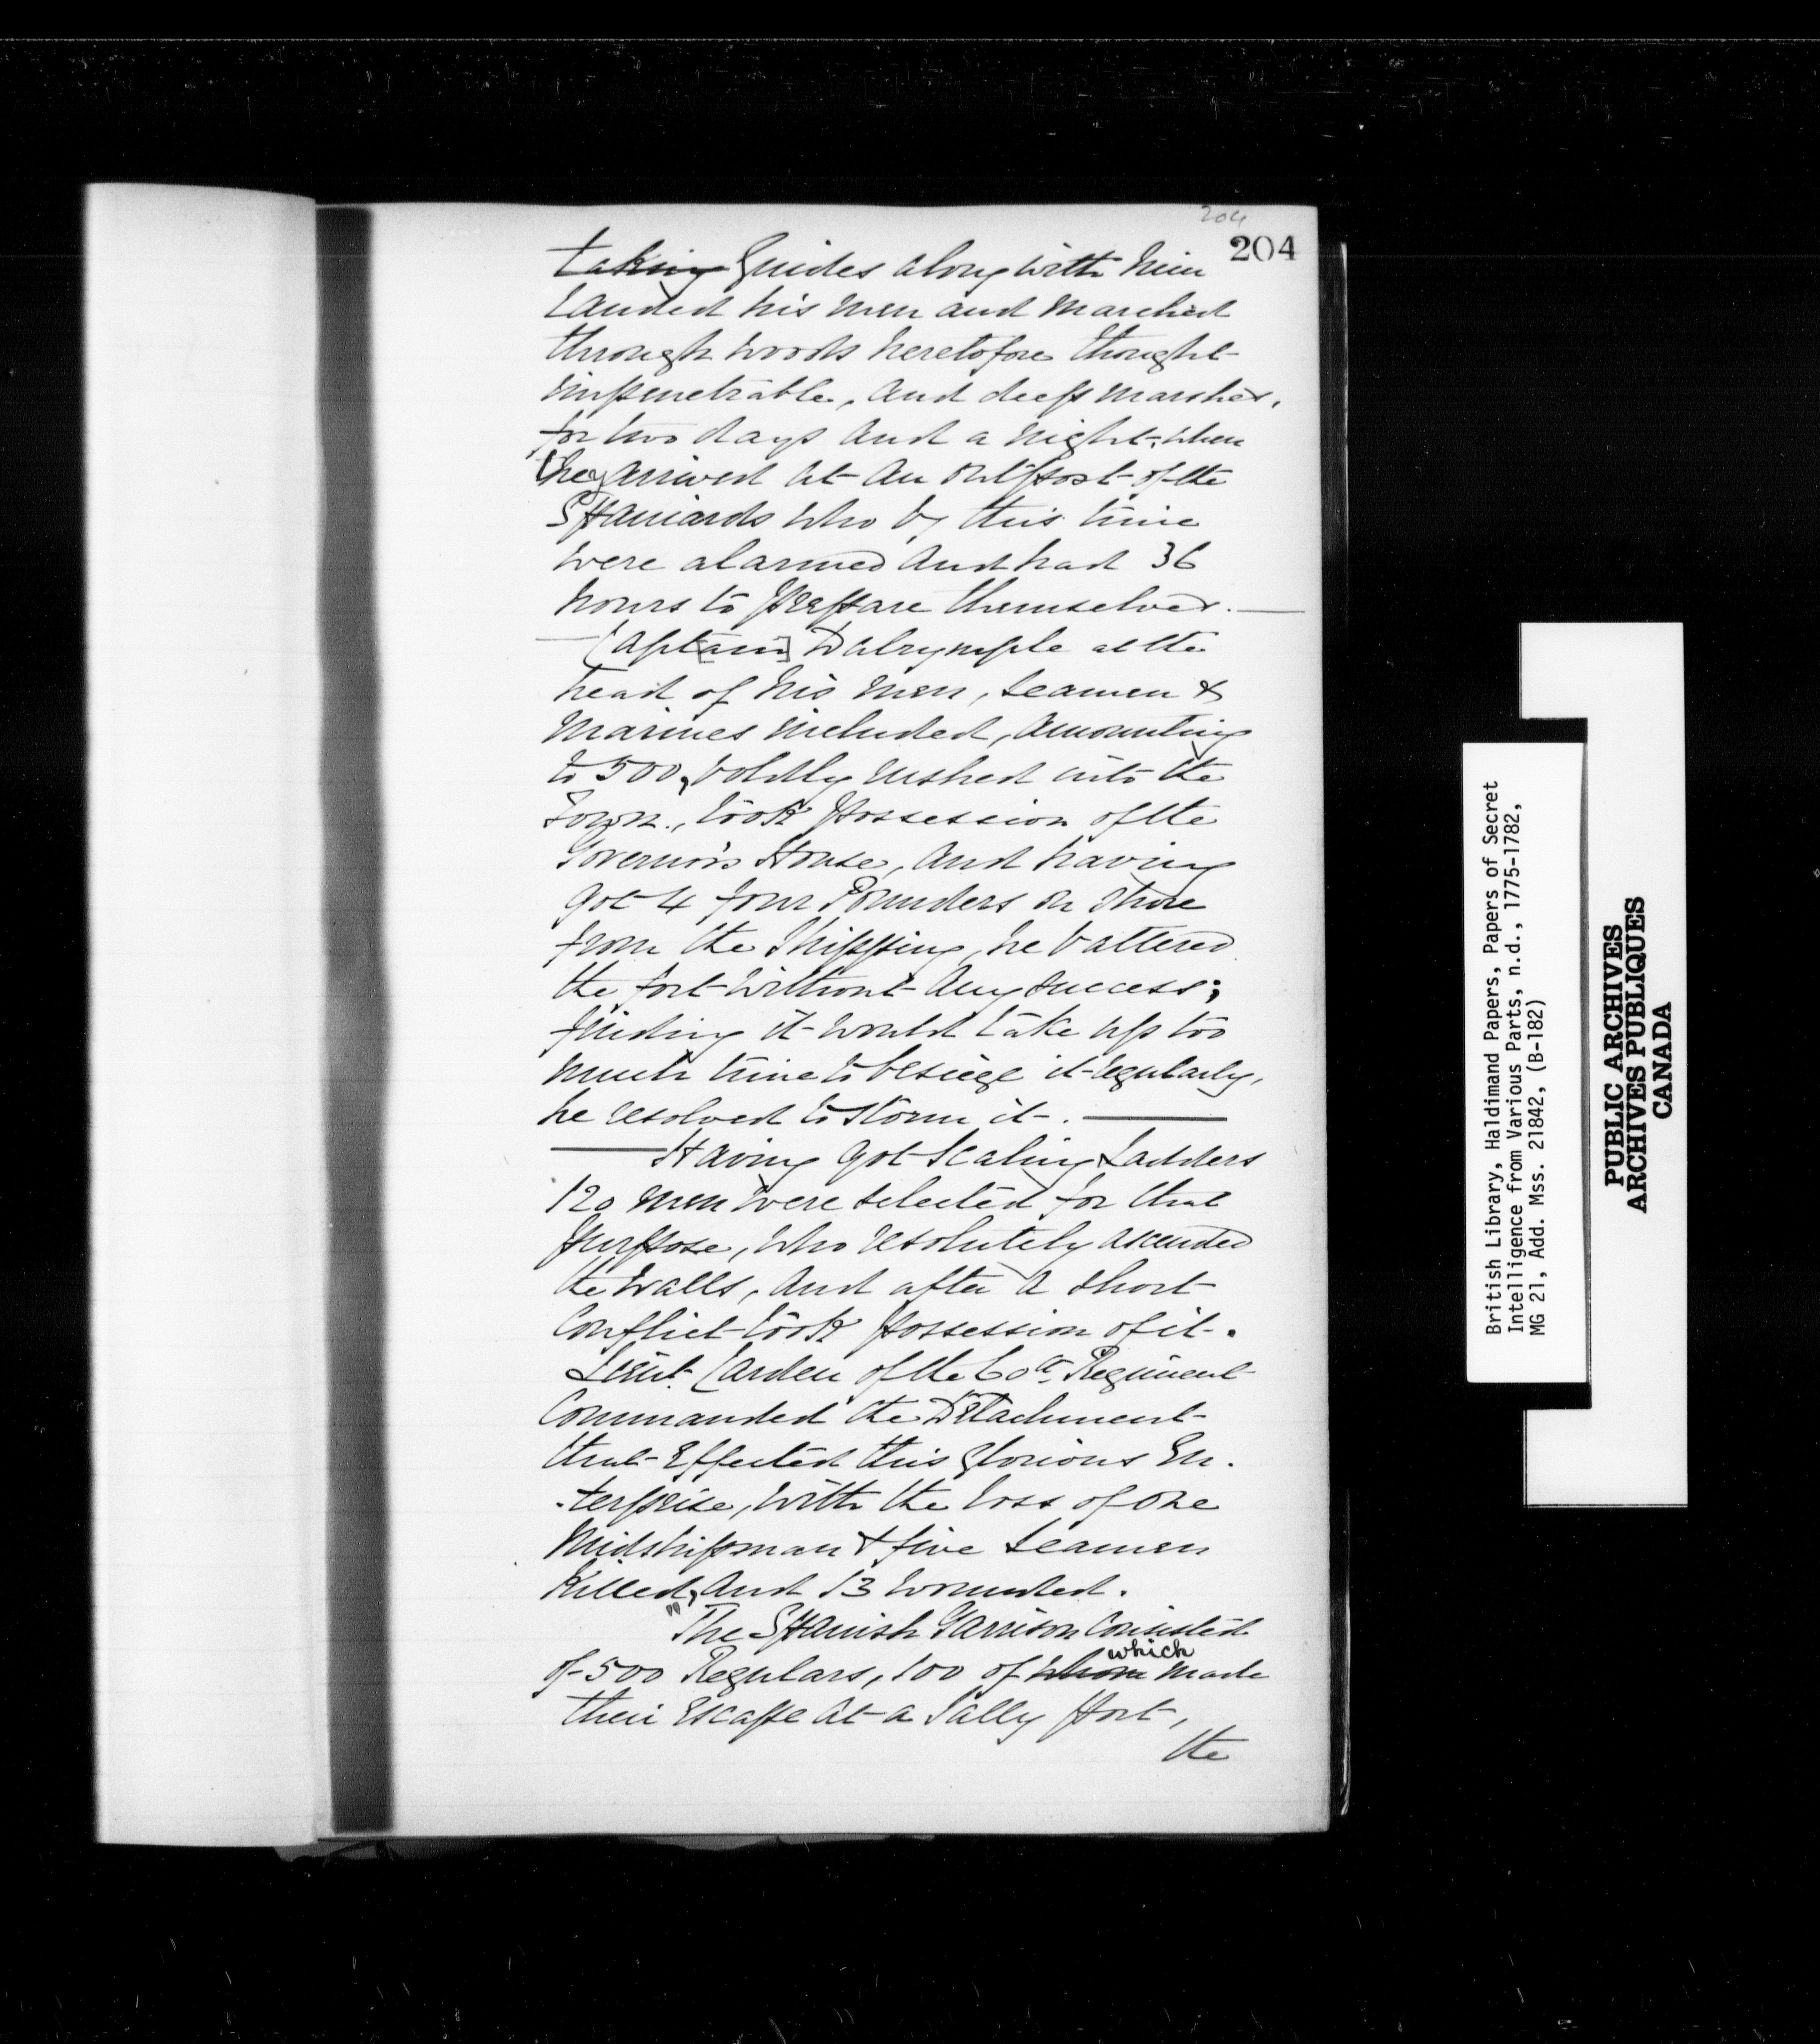 204
204
taking Guides along with him
landed his men and marched
through woods heretofore thought
impenetrable, and deep marshes,
for two days and a night, when
they arrived at an outpost of the
Spaniards who by this time
were alarmed and had 36
hours to prepare themselves. —
— Capt[ain] Dalrymple at the
head of his men, seamen &
Marines included, amounting
to 500, boldly rushed into the
Town, took possession of the
Governor's House, and having
got 4 four Pounders on Shore
from the Shipping, he battered
the fort without any success;
finding it would take up too
much time to besiege it regularly,
he resolved to storm it. —
— Having got Scaling Ladders
120 men were selected for that
purpose, who resolutely ascended
the Walls, and after a short
Conflict took possession of it.
Lieut. Carden of the 60th Regiment
Commanded the Detachment
that Effected this glorious En-
-terprise, with the loss of one
Midshipman & five Seamen
Killed, and 13 wounded.
"The Spanish Garrison Consisted
of 500 Regulars, 100 of whom which made
their Escape at a Sally port,
the
British Library, Haldimand Papers, Papers of Secret
Intelligence from Various Parts, n.d., 1775-1782,
MG 21, Add. Mss. 21842, (B-182)
PUBLIC ARCHIVES
ARCHIVES PUBLIQUES
CANADA